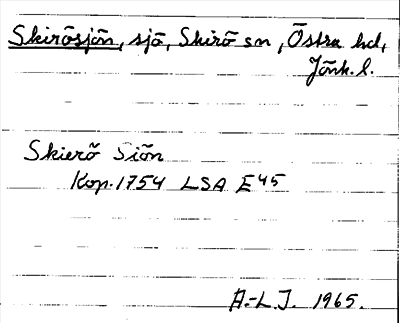 Skirösjön, sjö, Skirö sn, Östra hd,
Jönk. l.
Skierö Siön
Kop. 1754 LSA E45
A.-L. J. 1965.